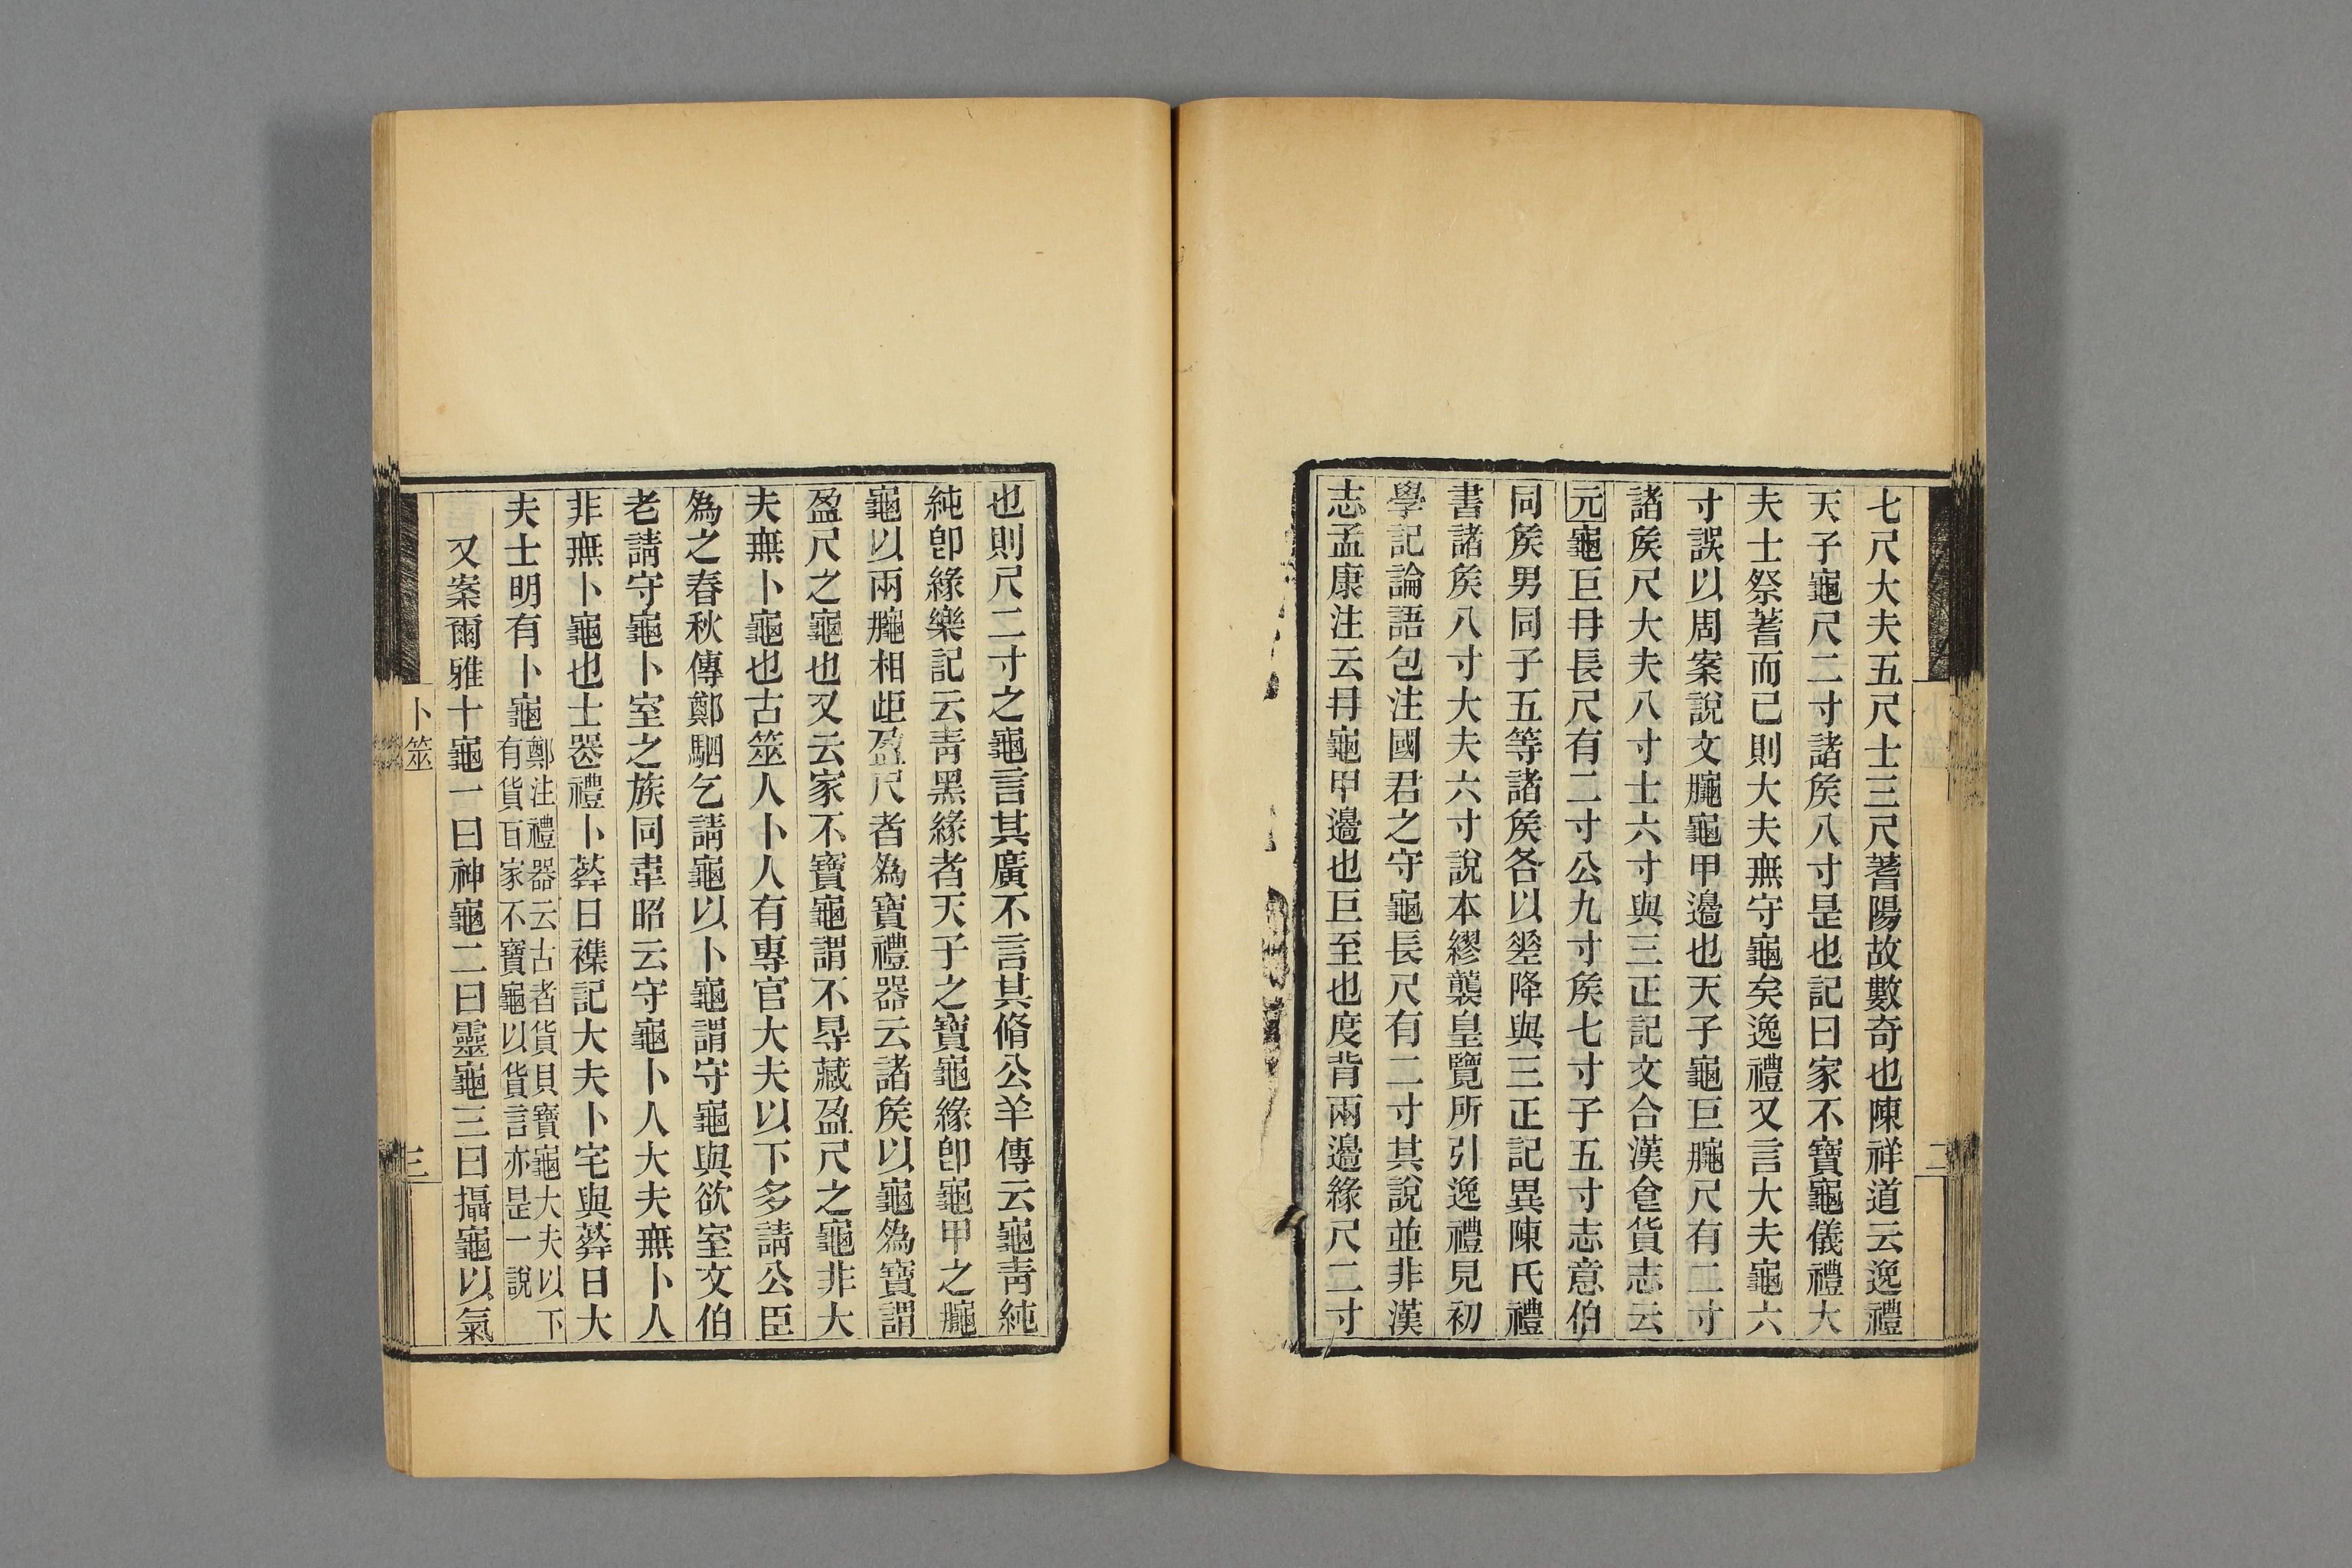 七尺大夫五尺士三尺蓍陽故數奇也陳祥道云逸禮
天子龜尺二寸諸矦八寸是也記曰家不寶龜儀禮大
夫士祭蓍而已則大夫無守龜矣逸禮又言大夫龜六
寸誤以周案說文𪚮龜甲邊也天子龜巨𪚮尺有二寸
諸矦尺大夫八寸士六寸與三正記文合漢食貨志云
元龜巨冄長尺有二寸公九寸矦七寸子五寸志意伯
同矦男同子五等諸矦各以差降與三正記異陳氏禮
書諸矦八寸大夫六寸說本繆襲皇覽所引逸禮見初
學記論語包注國君之守龜長尺有二寸其說並非漢
志孟康注云冄龜甲邊也巨至也度背兩邊緣尺二寸
也則尺二寸之龜言其廣不言其脩公羊傳云龜靑純
純卽緣樂記云靑黑緣者天子之寶龜緣卽龜甲之𪚮
龜以兩𪚮相歫盈尺者為寶禮器云諸矦以龜為寶謂
盈尺之龜也又云家不寶龜謂不㝵藏盈尺之龜非大
夫無卜龜也古筮人卜人有專官大夫以下多請公臣
為之春秋傳鄭駟乞請龜以卜龜謂守龜與欲室文伯
老請守龜卜室之族同韋昭云守龜卜人大夫無卜人
非無卜龜也士喪禮卜葬日襍記大夫卜宅與葬日大
夫士明有卜龜鄭注禮器云古者貨貝寶龜大夫以下
有貨百家不寶龜以貨言亦是一說
又案爾雅十龜一曰神龜二曰靈龜三曰攝龜以氣
卜筮
三
二